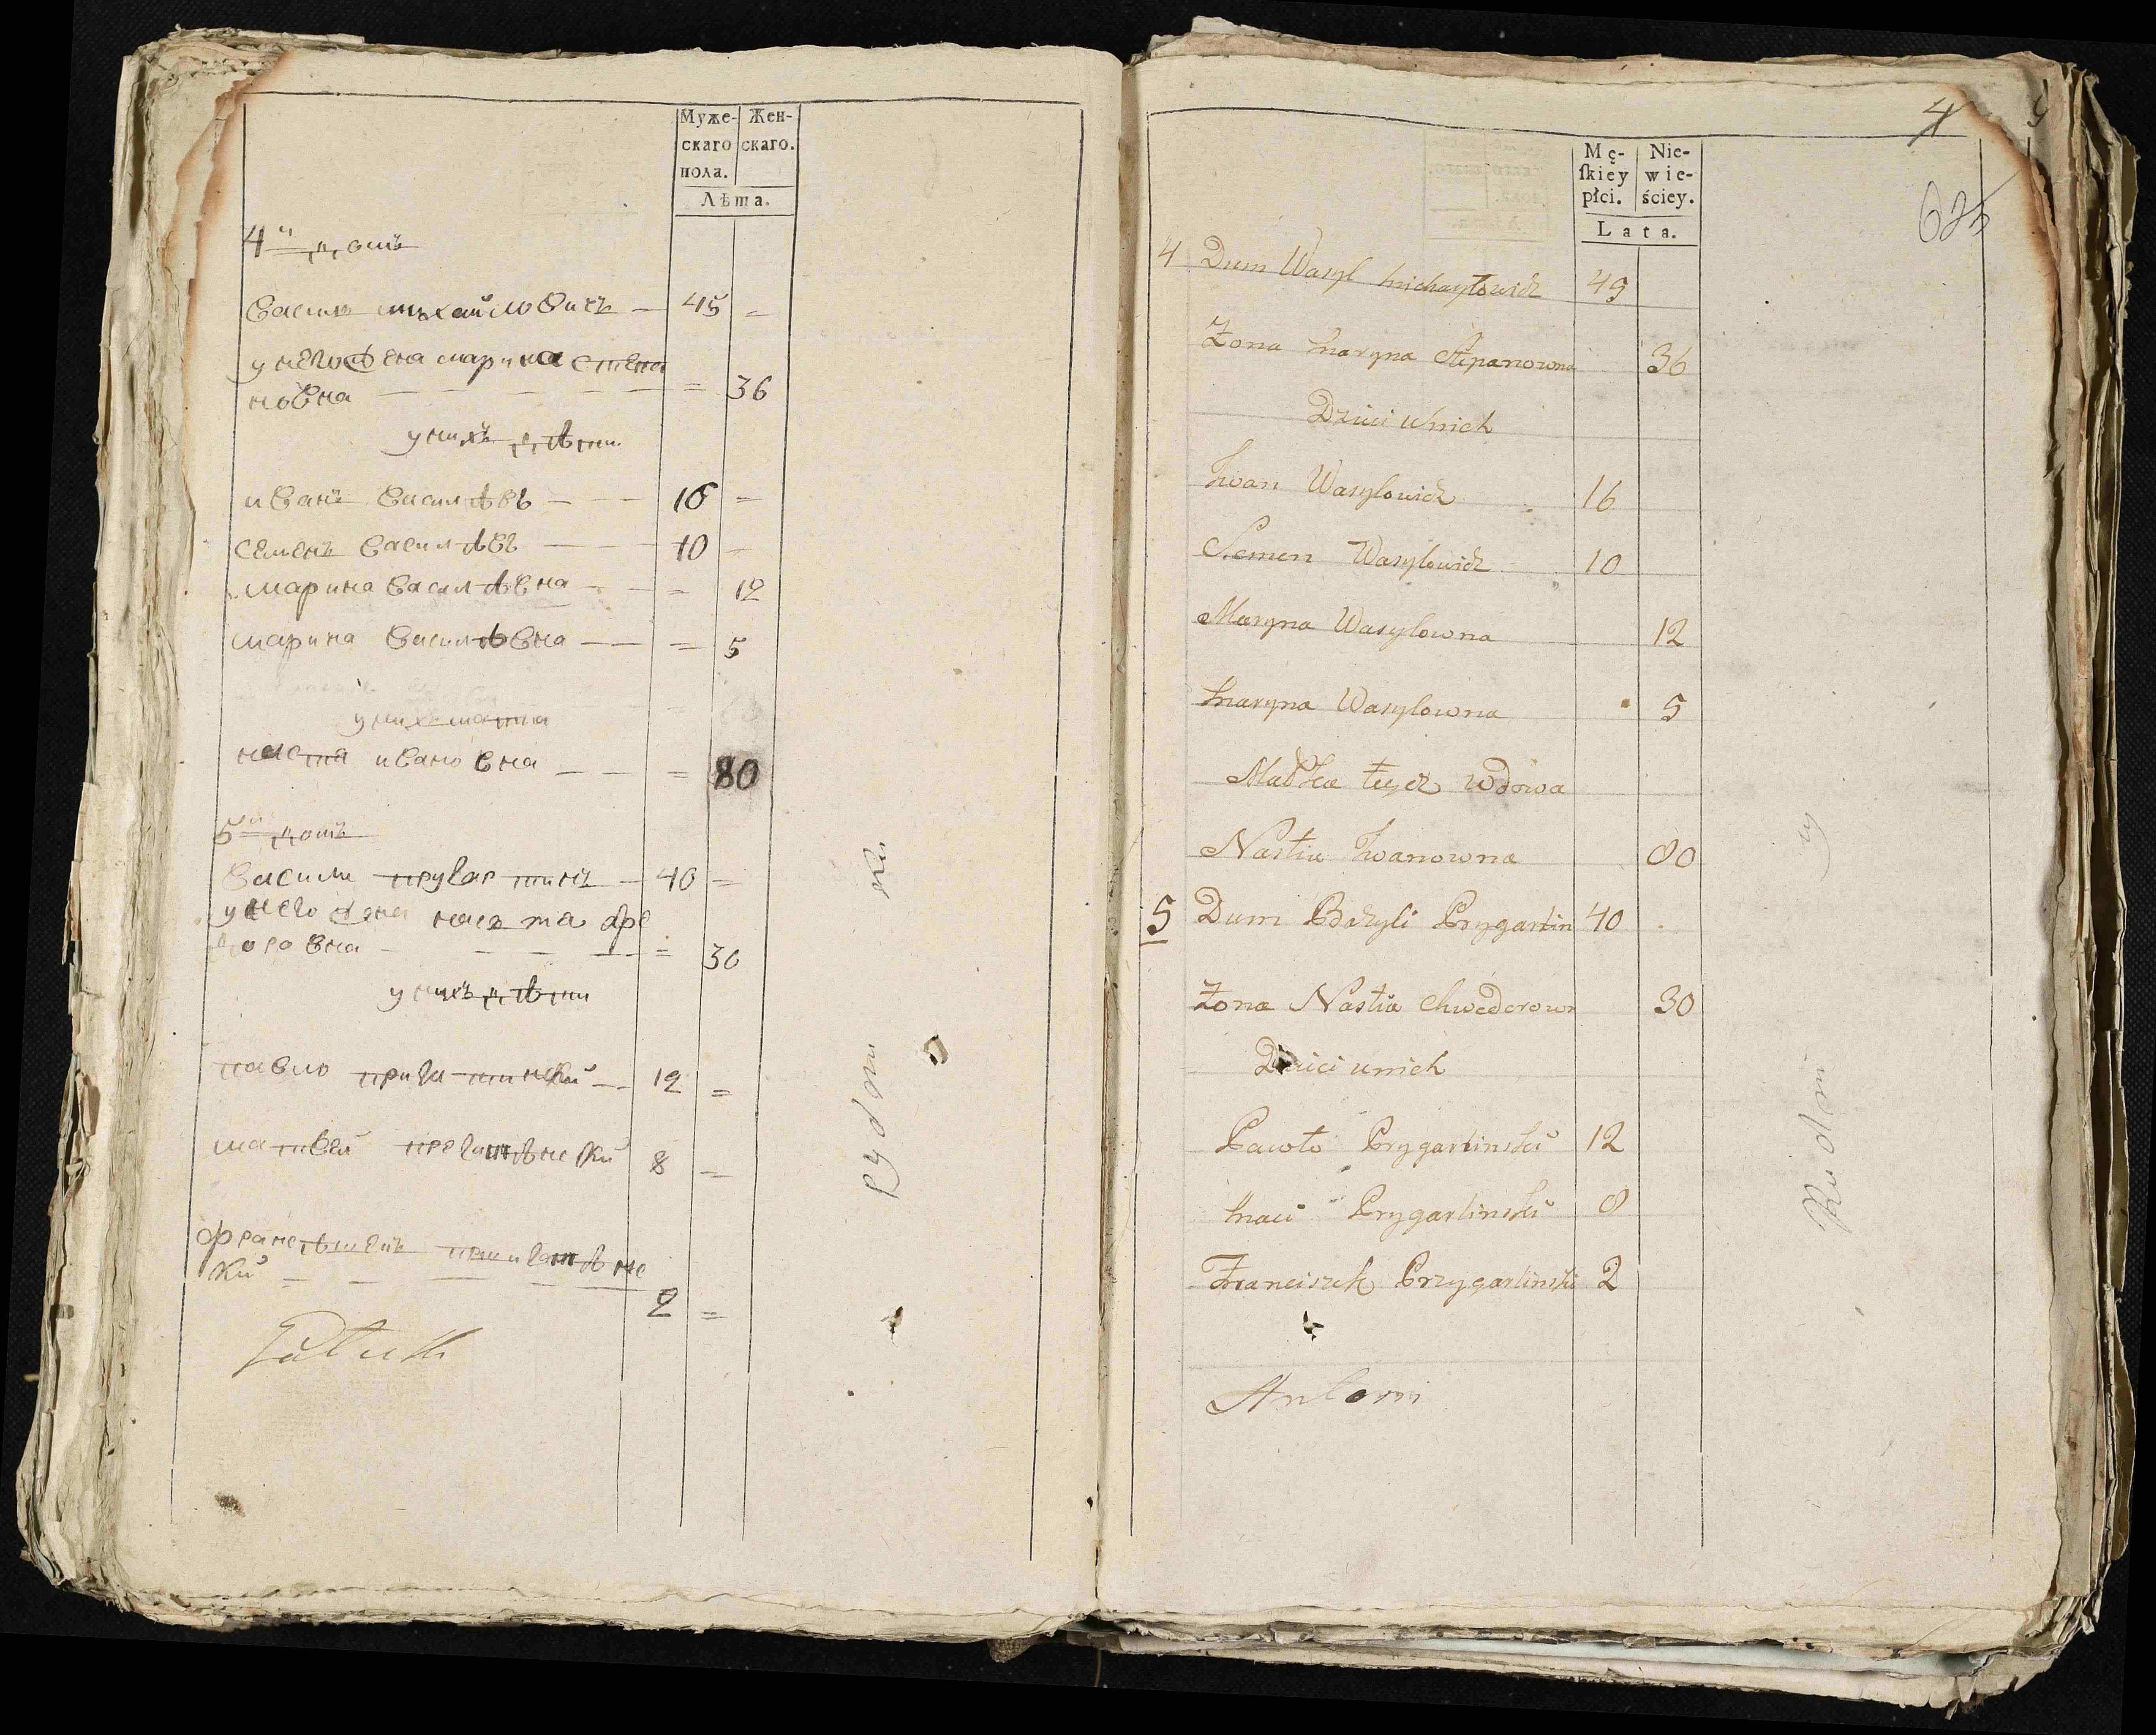 Муже-
скаго
пола.
Жен-
скаго.
Лѣта.
4й домъ
Василь михайловичъ — 45 =
у него жена марина степа
новна — = 36
у нихъ дѣти
иванъ василѣвъ — 16 =
семенъ василѣвъ — 10 =
марина василѣвна — = 12
марина василѣвна — = 5
у них матка
настя ивановна — = 80
5й домъ
василы — 40 =
у него жена наста фе
доровна — = 30
у нихъ дѣти
павло — 12 =
матвей 8 =
ки 2 =
Рудни
ки
4
Mę-
ſkiey
płci.
Nie-
wie-
ściey.
Lata.
4 Dum Wasyl Michayłowicz 45
Żona Maryna Stepanowna 36
Dzieci u nich
Iwan Wasylowicz 16
Semen Wasylowicz 10
Maryna Wasylowna 12
Maryna Wasylowna 5
Matka tegoż wdowa
Nastia Iwanowna 80
5 Dum Bazyli Prygartin 40
Żona Nastia Chwedorown 30
Dzieci u nich
Pawoło Prygartinski 12
Maci Prygartinski 8
Franciszek Przygartinski 2
Antoni
Rudni